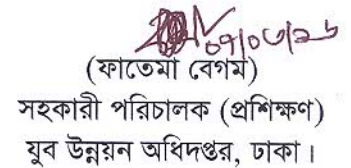 (ফাতেমা বেগম)
সহকারী পরিচালক (প্রশিক্ষণ)
যুব উন্নয়ন অধিদপ্তর, ঢাকা।